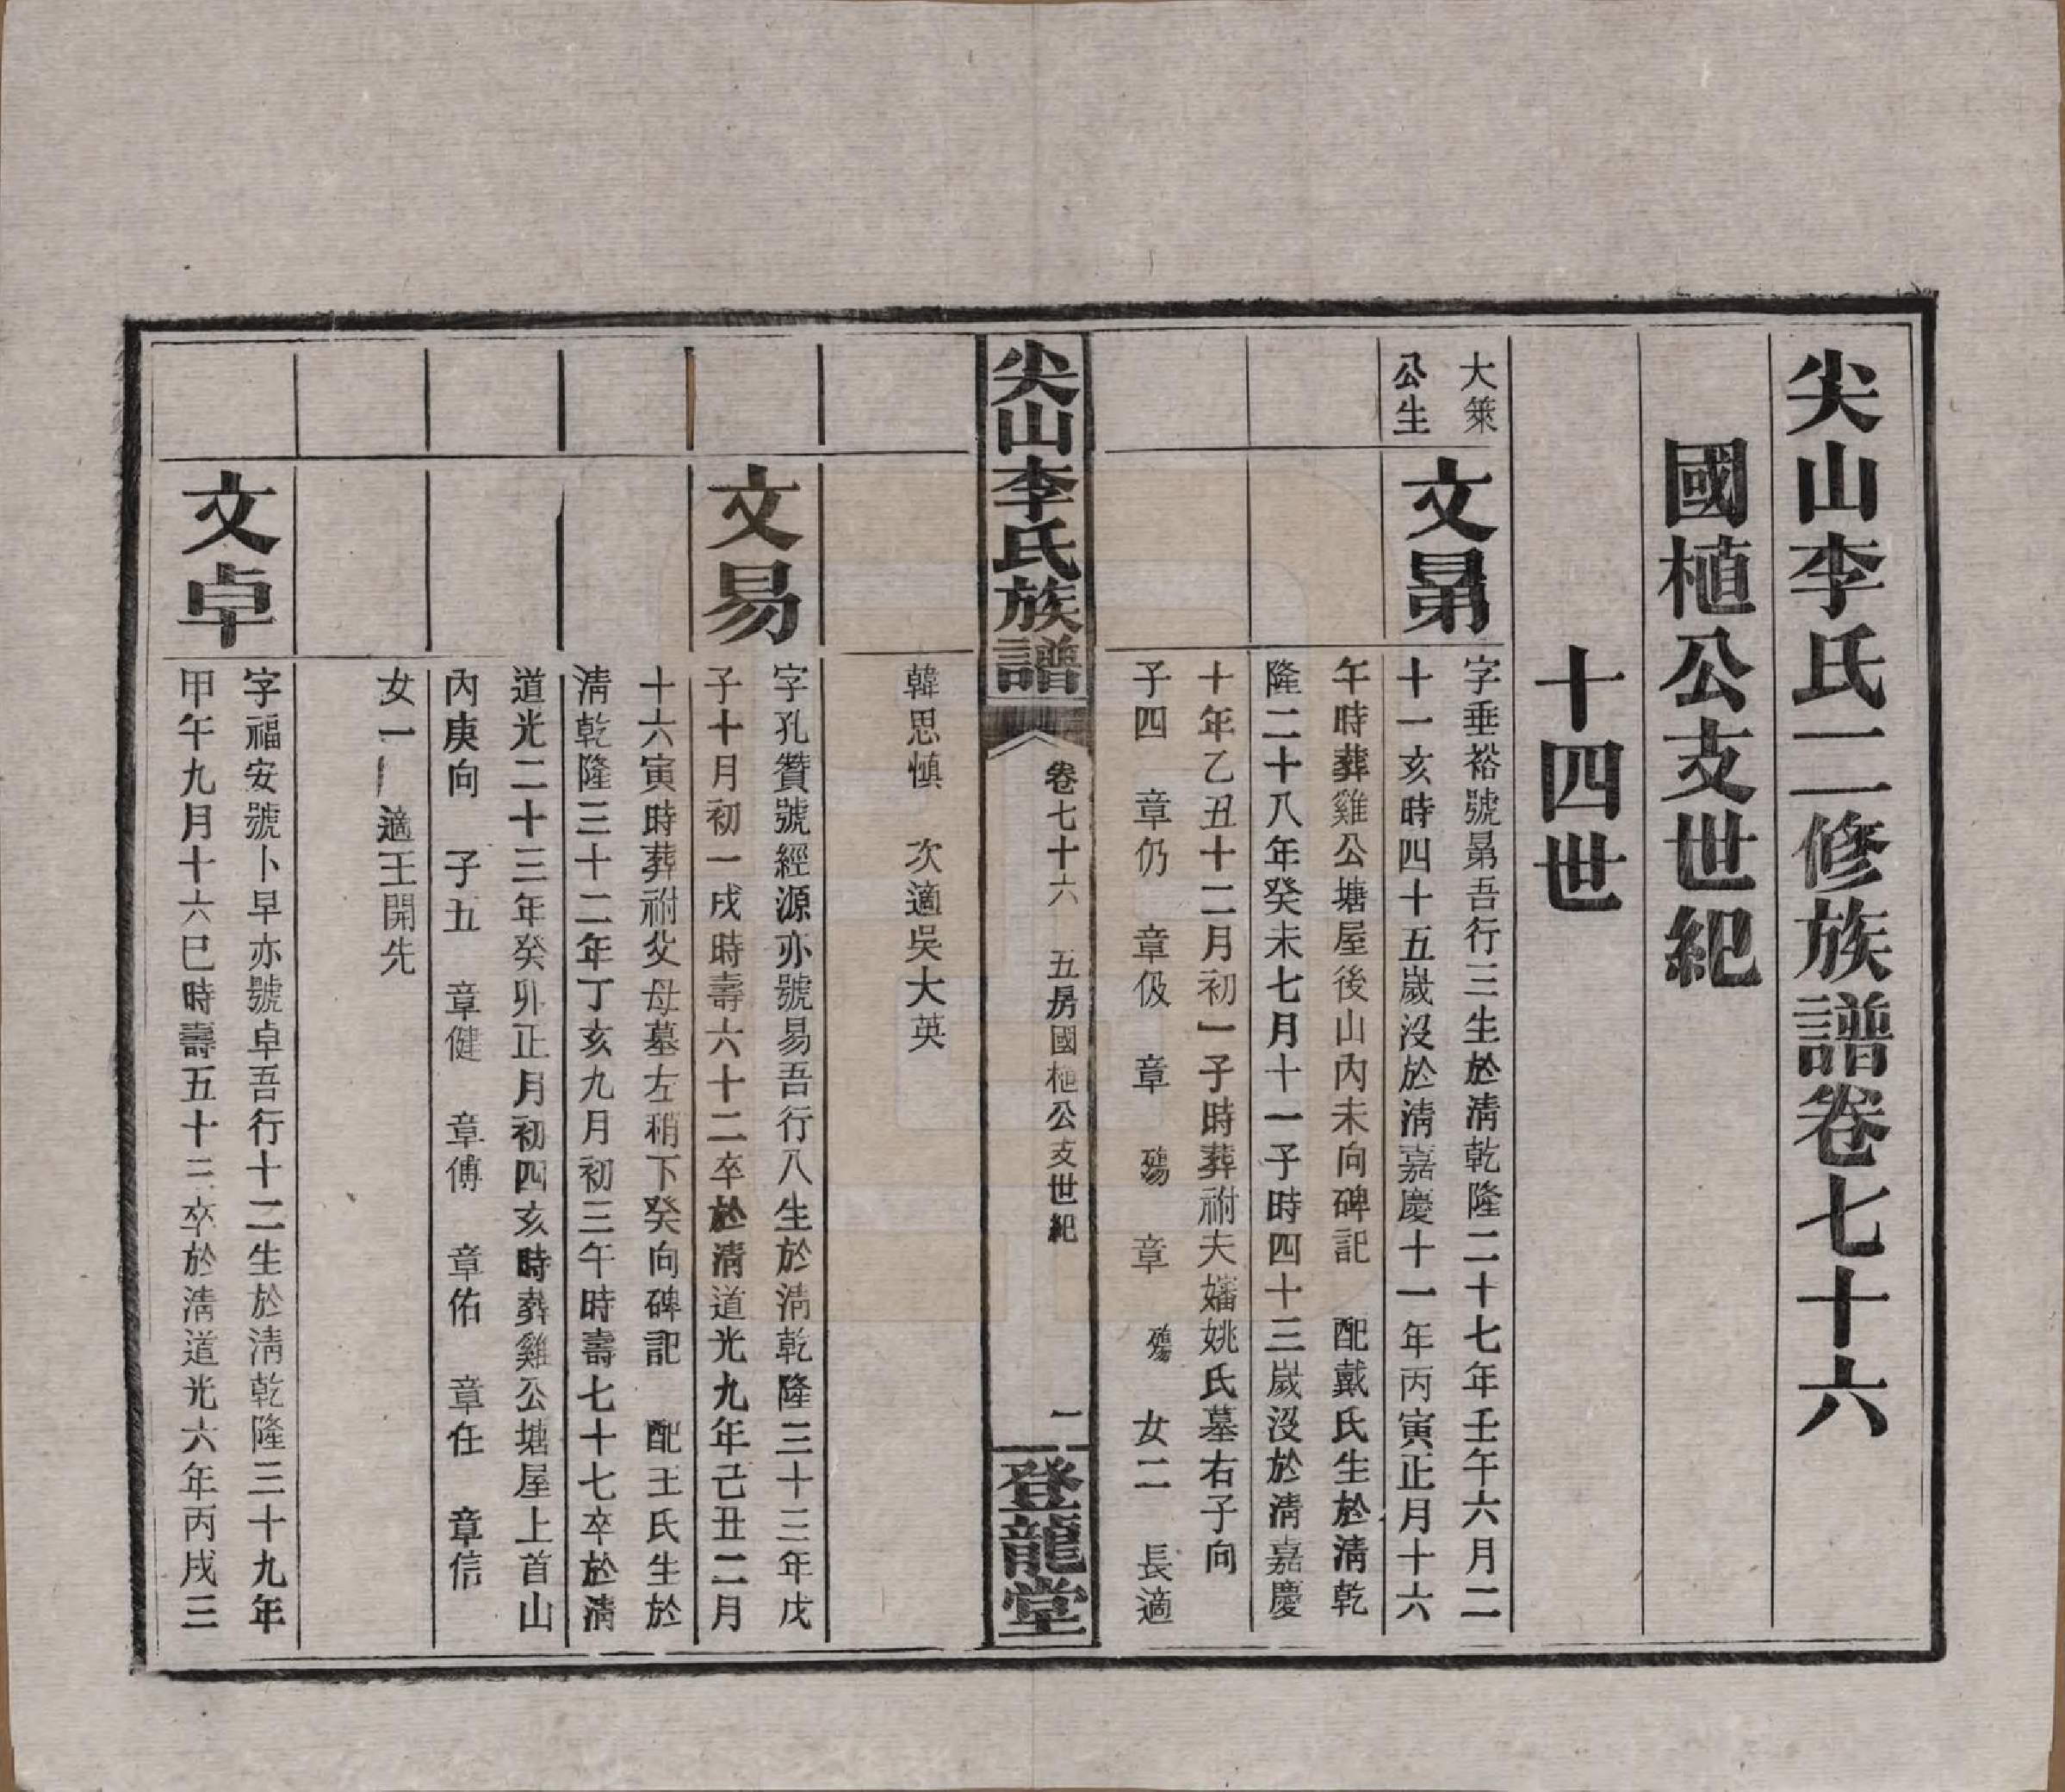 尖山李氏二修族譜卷七十六
國植公支世紀
十四世
大築
公生
文晜
字垂裕號晜吾行三生於淸乾隆二十七年壬午六月二
十一亥時四十五歲沒於淸嘉慶十一年丙寅正月十六
午時葬雞公塘屋後山內未向碑記 配戴氏生於淸乾
隆二十八年癸未七月十一子時四十三歲沒於淸嘉慶
十年乙丑十二月初一子時葬祔夫嬸姚氏墓右子向
子四 章仍 章伋 章 殤 章 殤 女二 長適
尖山李氏族譜
卷七十六 五房國植公支世紀
一
登龍堂
韓思愼 次適吳大英
文易
字孔贊號經源亦號易吾行八生於淸乾隆三十三年戊
子十月初一戌時壽六十二卒於淸道光九年己丑二月
十六寅時葬祔父母墓左稍下癸向碑記 配王氏生於
淸乾隆三十二年丁亥九月初三午時壽七十七卒於淸
道光二十三年癸卯正月初四亥時葬雞公塘屋上首山
內庚向 子五 章健 章傅 章佑 章任 章信
女一 適王開先
文卓
字福安號卜早亦號卓吾行十二生於淸乾隆三十九年
甲午九月十六巳時壽五十三卒於淸道光六年丙戌三